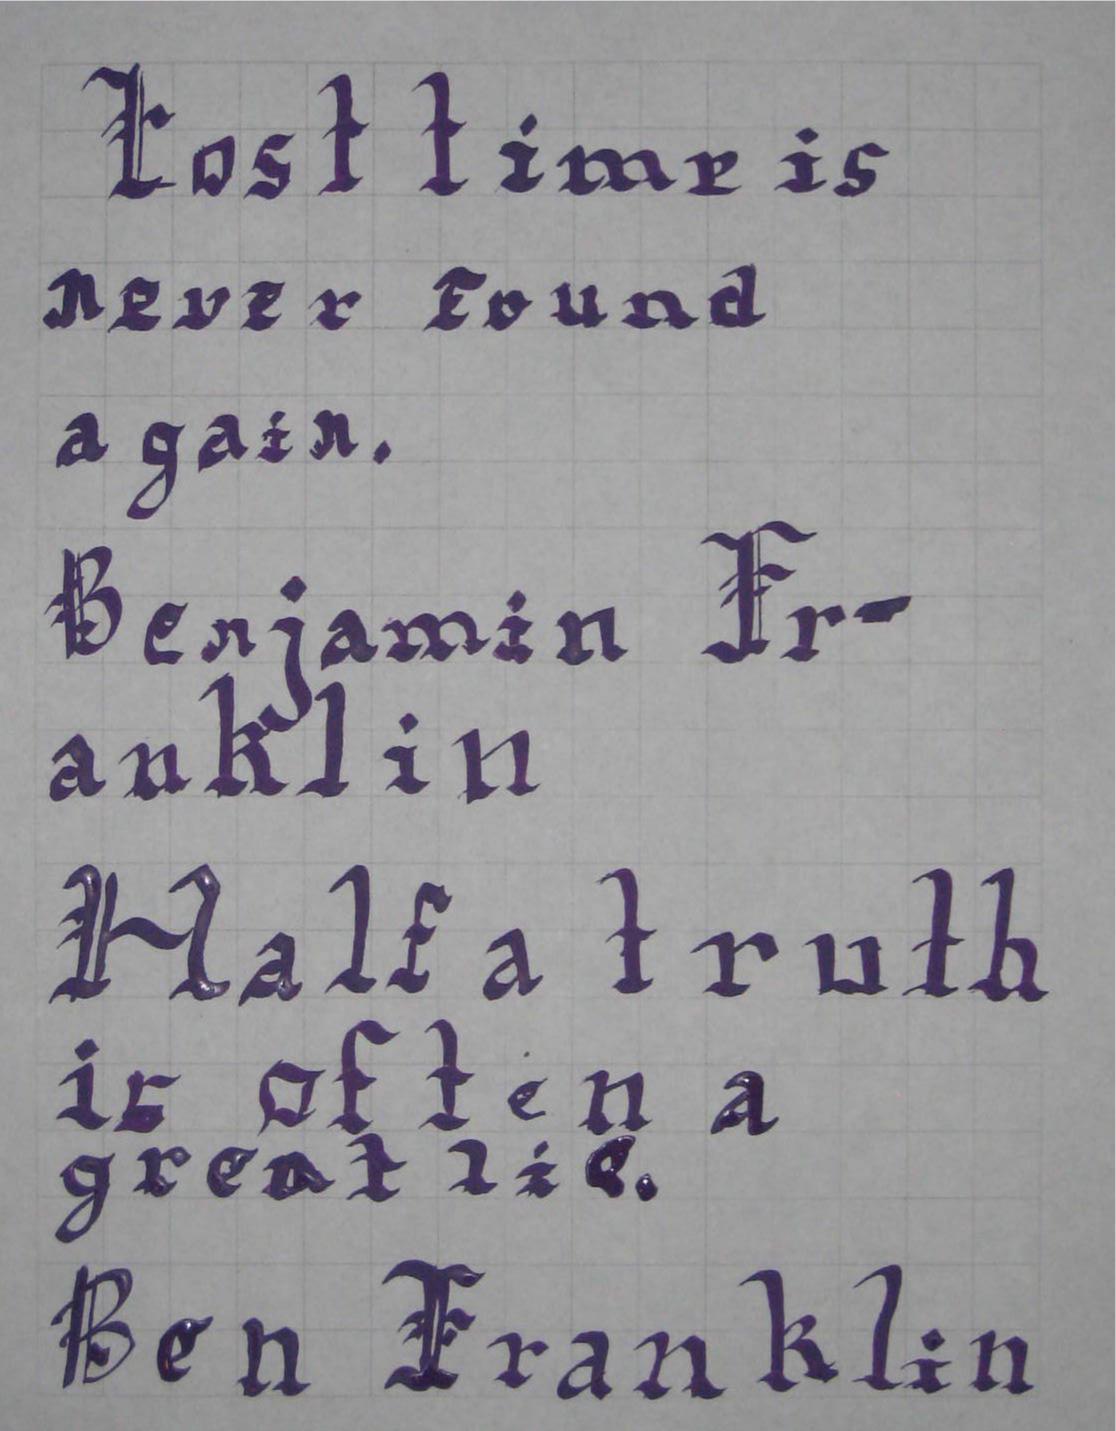 Lost time is
never found
again.
Benjamin Fr-
anklin
Half a truth
is often a
great lie.
Ben Franklin